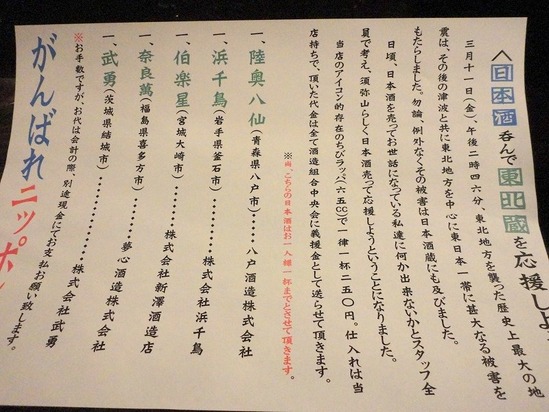 へ日本酒呑んで東北蔵を応援しよ
三月十一日(金)、午後二時四六分、東北地方を襲った歴史上最大の地
震は、その後の津波と共に東北地方を中心に東日本一帯に甚大なる被害を
もたらしました。勿論、例外なくその被害は日本酒蔵にも及びました。
日頃、日本酒を売ってお世話になっている私達に何か出来ないかとスタッフ全
員で考え、須弥山らしく日本酒売って応援しようということになりました。
当店のアイコン的存在のちびラッパ(六五cc)で一律一杯二五〇円。仕入れは当
店持ちで、頂いた代金は全て酒造組合中央会に義援金として送らせて頂きます。
※尚、こちらの日本酒はお一人様一杯までとさせて頂きます。
一、陸奥八仙(青森県八戸市)………八戸酒造株式会社
一、浜千鳥(岩手県釜石市)………株式会社浜千鳥
一、伯楽星(宮城大崎市)………株式会社新澤酒造店
一、奈良萬(福島県喜多方市)………夢心酒造株式会社
一、武勇(茨城県結城市)………株式会社武勇
※お手数ですが、お代は会計の際、別途現金にてお支払お願い致します。
がんばれニッポン